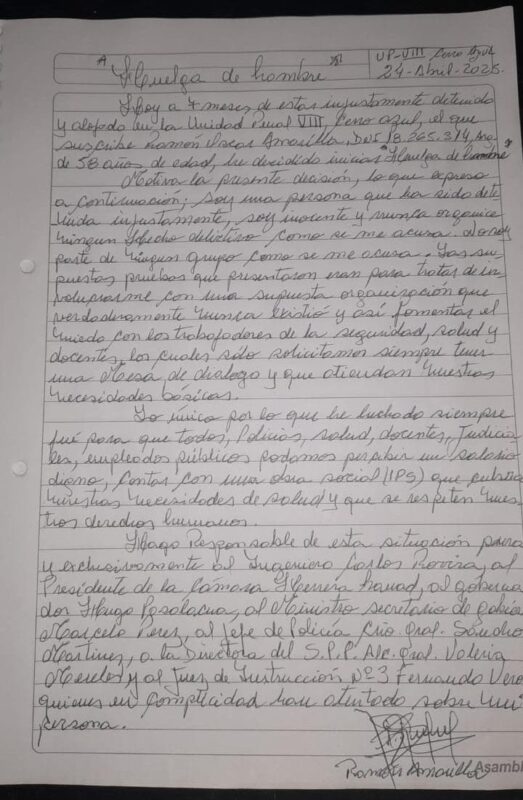 UP-VIII Cerro Azul
24-Abril-2025.
"Huelga de hambre"
Hoy a 7 meses de estar injustamente detenido
y alojado en la Unidad Penal VIII, Cerro azul, el que
suscribe Ramón Oscar Amarilla, DNI 18.265.314, Arg.
de 58 años de edad, he decidido iniciar "Huelga de hambre"
Motiva la presente decisión, lo que expreso
a continuación; soy una persona que ha sido dete-
nida injustamente, soy inocente y nunca organice
ningun Hecho delictivo como se me acusa. No soy
parte de ningun grupo como se me acusa. Las su-
puestas pruebas que presentaron eran para tratar de in-
volucrarme con una supuesta organización que
verdaderamente nunca existió y así fomentar el
miedo con los trabajadores de la seguridad, salud y
docentes, los cuales sólo solicitamos siempre tener
una Mesa de dialogo y que atiendan nuestras
necesidades básicas.
Lo único por lo que he luchado siempre
fué para que todos, Policías, salud, docentes, Judicia-
les, empleados públicos podamos percibir un salario
digno, contar con una obra social (IPS) que cubra
nuestras necesidades de salud y que se respeten nues-
tros derechos humanos.
Hago Responsable de esta situación pura
y exclusivamente al Ingeniero Carlos Rovira, al
Presidente de la Cámara Herrera Ahuad, al goberna-
dor Hugo Passalacua, al Ministro secretario de gabin
Marcelo Perez, al Jefe de Policía Crio. Gral. Sandro
Martinez, a la Directora del S.P.P. Alc. Gral. Valeria
Mereles y al Juez de Instrucción Nº3 Fernando Vero
quienes en complicidad han atentado sobre mi
persona.
Ramón Amarilla
Asambl